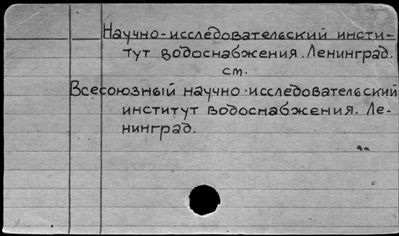 Научно-исследовательский инсти-
тут водоснабжения. Ленинград.
см.
Всесоюзный научно-исследовательский
институт водоснабжения. Ле-
нинград.